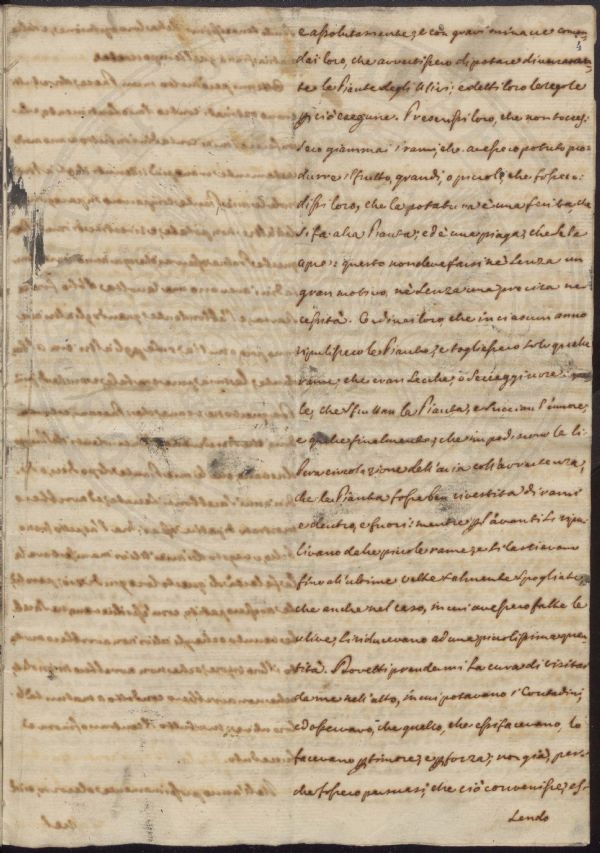 e assolutamente, e con gravi minacce coman-
4
dai loro, che avvertissero di potare diversamen-
te le Piante degli Ulivi; e detti loro le regole
p ciò eseguire. Prescrissi loro, che non toccas-
sero giammai i rami, che avessero potuto pro-
durre il frutto, grandi, o piccoli, che fossero:
dissi loro, che la potatura è una ferita, che
si fa alla Pianta, ed è una piaga, che se le
apre: e questo non deve farsi nè senza un
gran motivo, nè senza una precisa ne-
cessità. Ordinai loro, che in ciascun anno
ripulissero le Piante, e togliessero solo quelle
rame, che eran secche, o seccaggiose: 
le, che sfruttan la Pianta, e succian l'umore;
e quelle finalmente, che impediscono la li-
bera circolazione dell'aria coll'avvertenza,
che la Pianta fosse ben rivestita di rami
e dentro, e fuori: mentre p l'avanti si ripu-
livano dalle piccole rame, e si lasciavano
fino all'ultime vette talmente spogliate,
che anche nel caso, in cui avessero fatte le
ulive, si riducevano ad una piccolissima quan-
tità. Dovetti prendermi la cura di visitar
da me nell'atto, in cui potavano i Contadini,
ed osservavo, che quello, che essi facevano, lo
facevano p timore, e p forza; non già, per-
che fossero persuasi, che ciò convenisse, es-
sendo